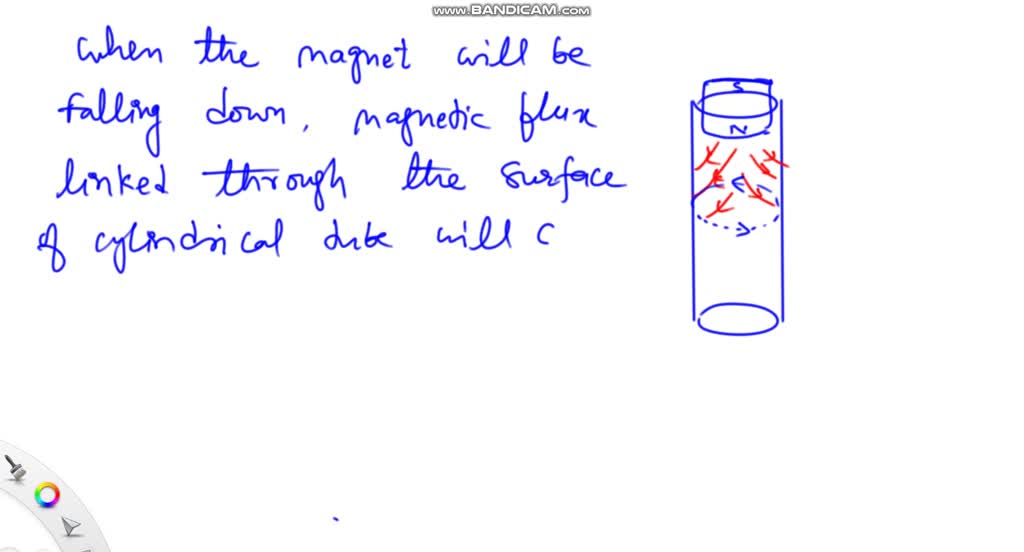 www.BANDICAM.com
when the magnet will be
falling down, magnetic flux
linked through the surface
of cylindrical tube will c
S
N